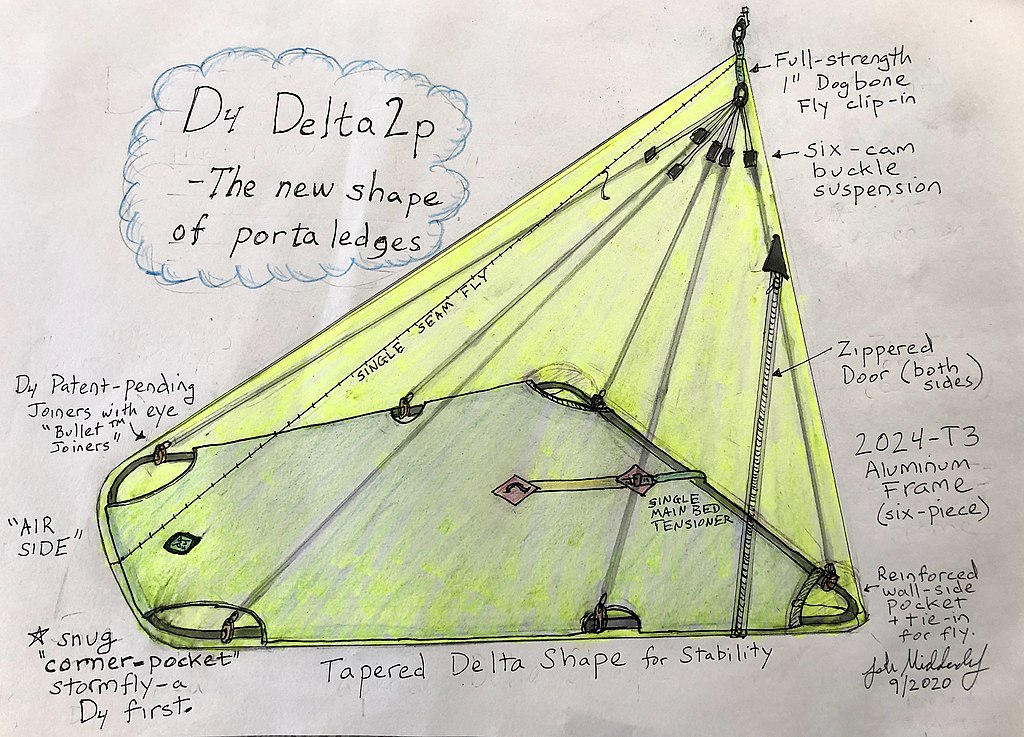 D4 Delta2p
-The new shape
of portaledges
Full-strength
1" Dogbone
Fly clip-in
six-cam
buckle
suspension
SINGLE SEAM FLY
Zippered
Door (both
sides)
D4 Patent-pending
Joiners with eye
"Bullet™
Joiners"
2024-T3
Aluminum
Frame
(six-piece)
SINGLE
MAIN BED
TENSIONER
"AIR
SIDE"
Reinforced
wall-side
pocket
+ tie-in
for fly.
☆ snug
"corner-pocket"
stormfly-a
D4 first.
Tapered Delta Shape for Stability
9/2020